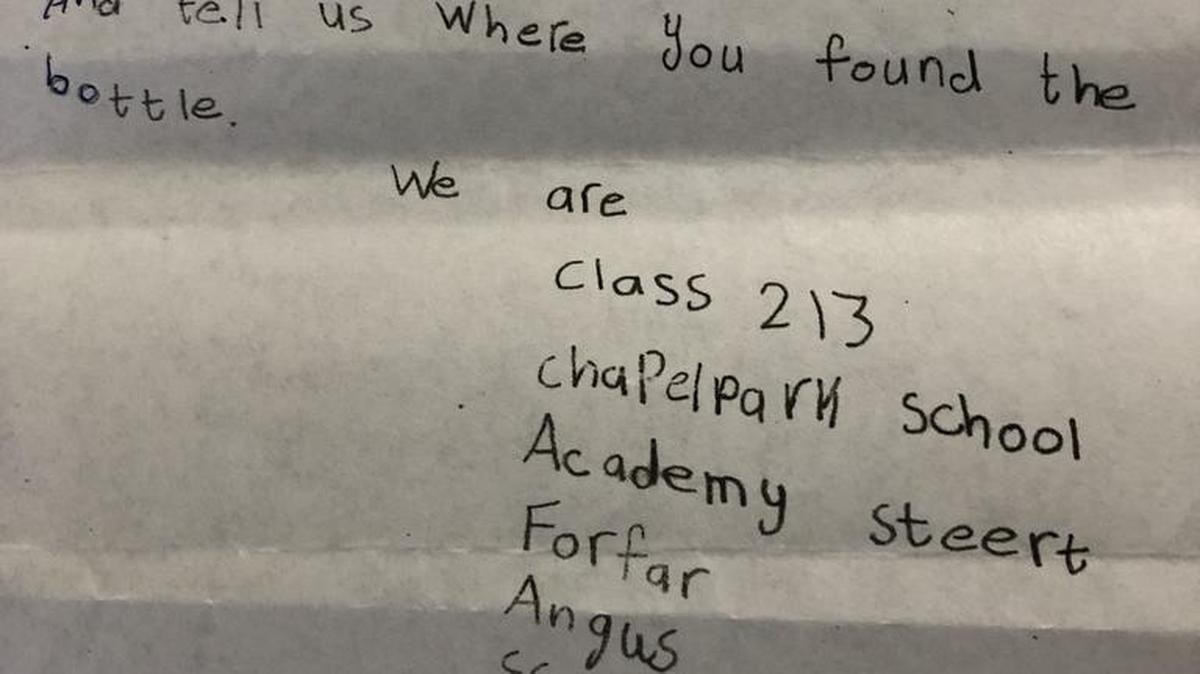 And tell us where you found the
bottle.
We are
Class 213
chapelpark school
Academy steert
Forfar
Angus